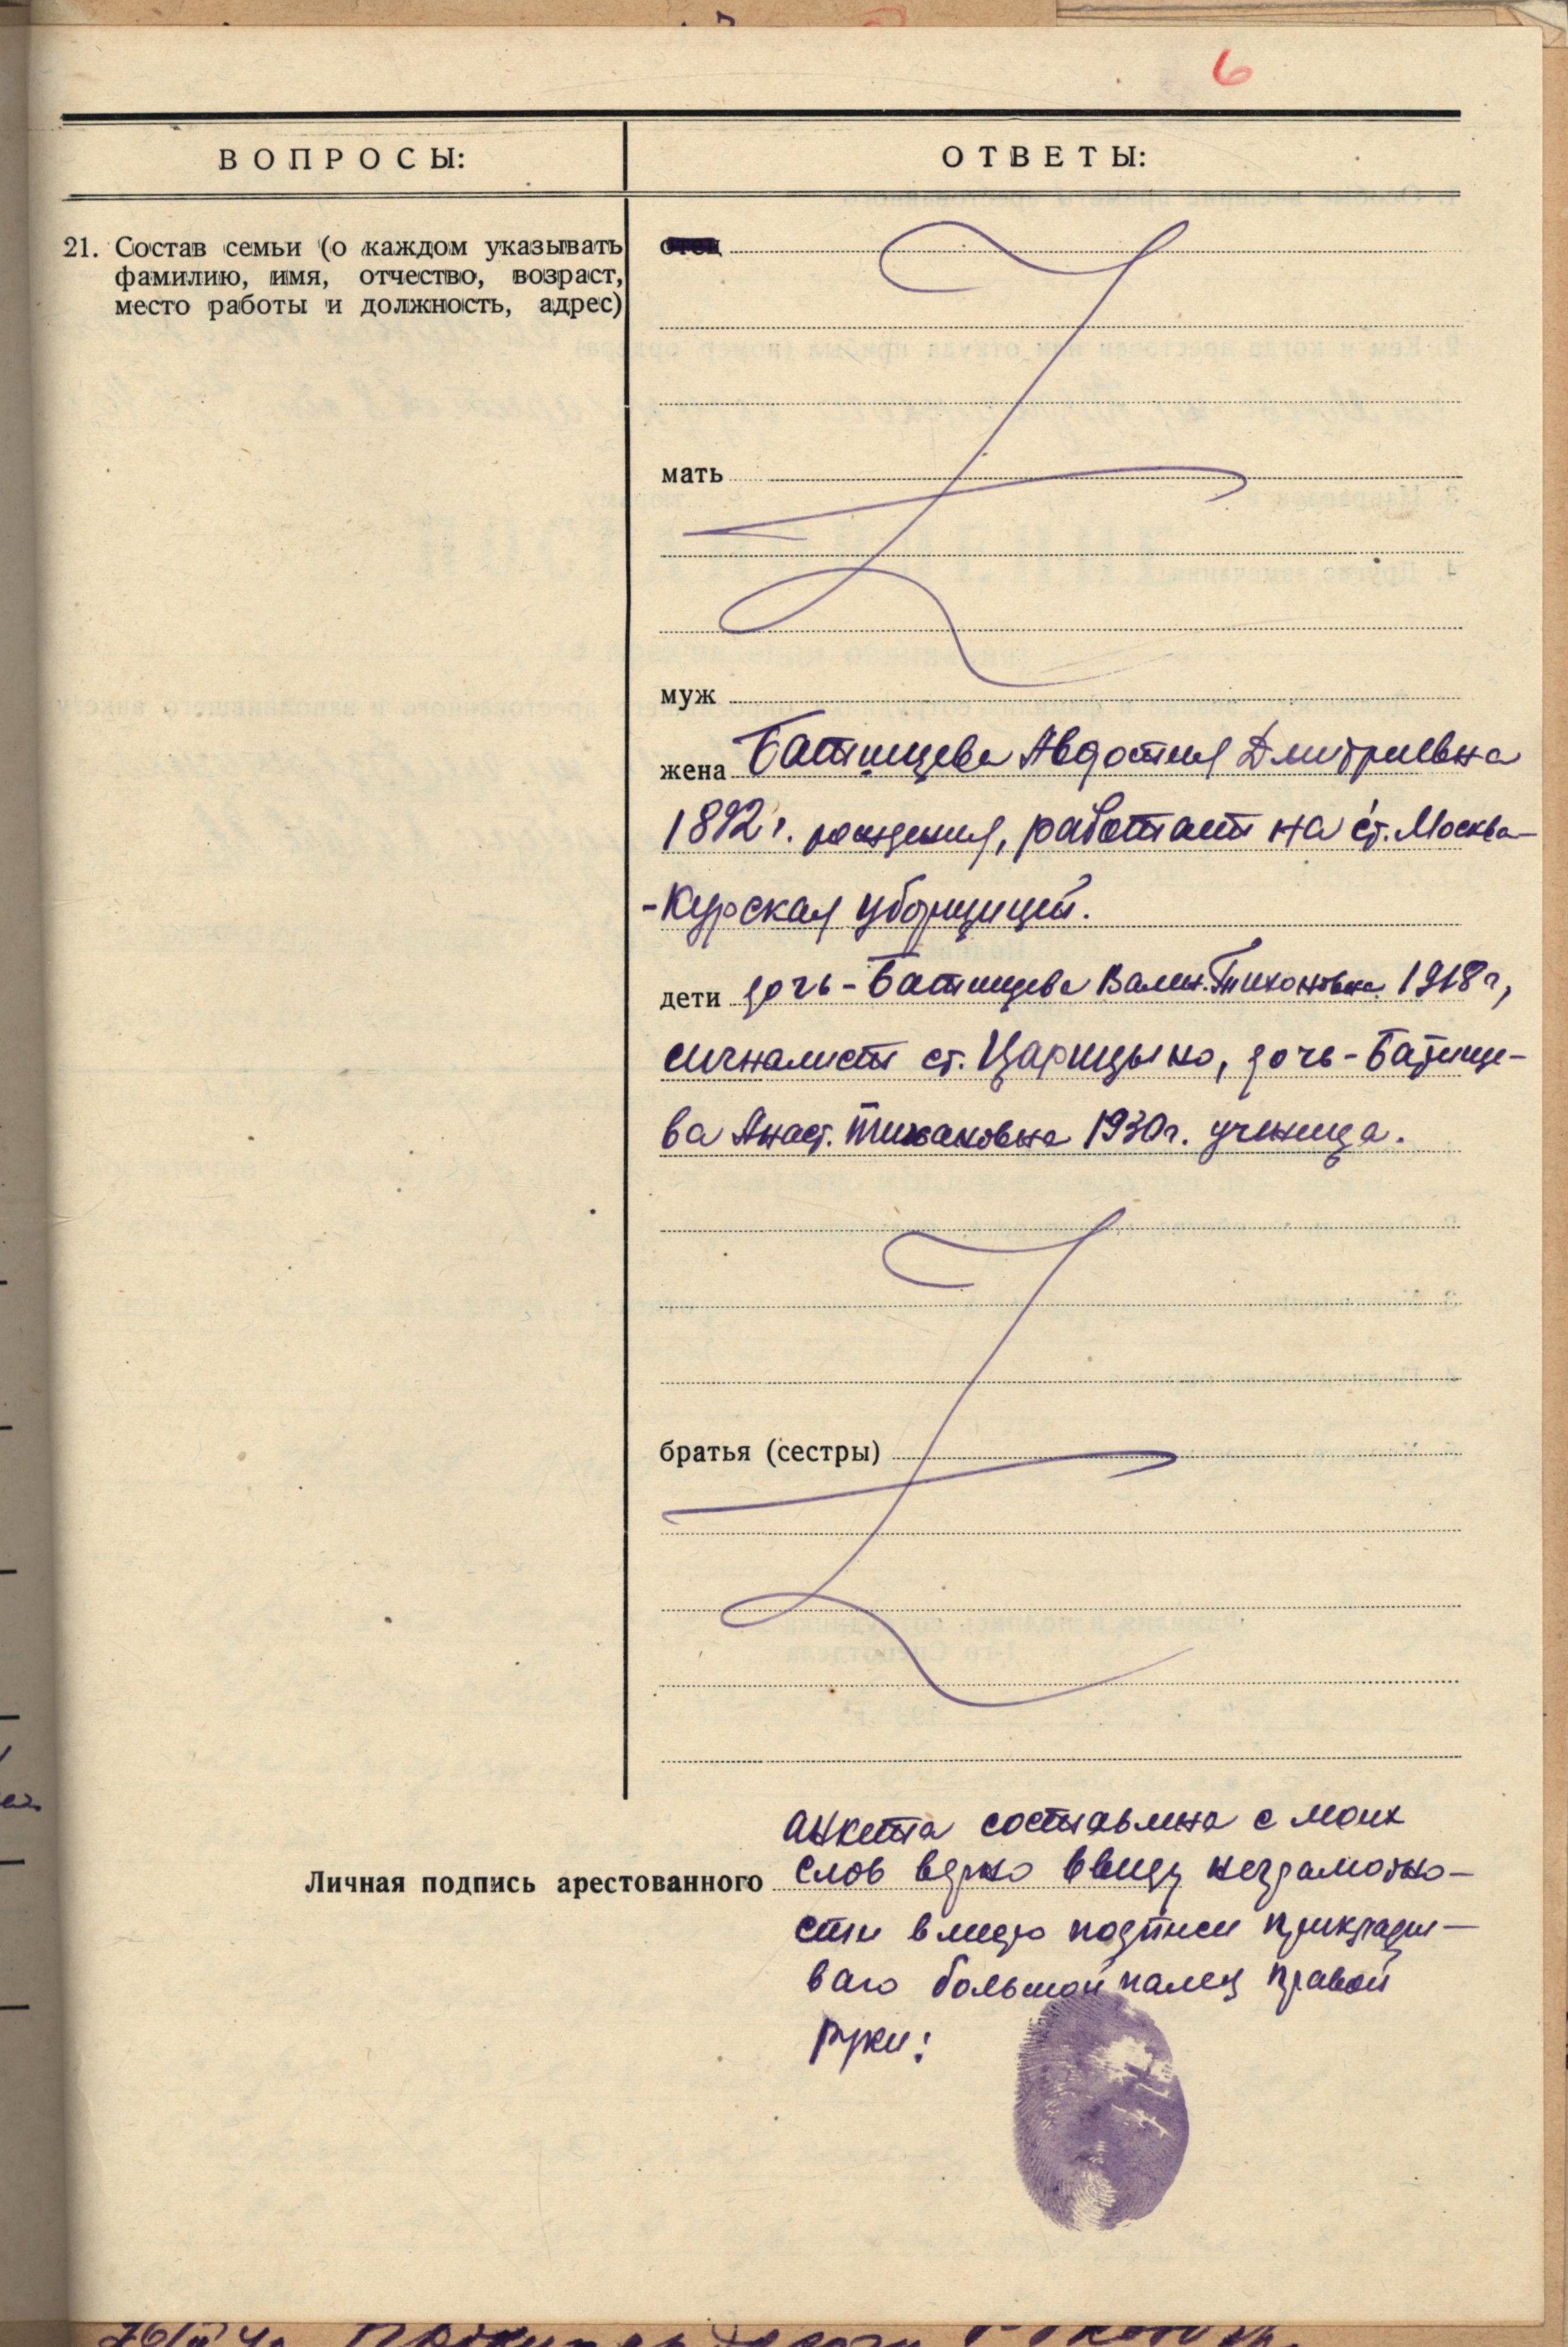 6
ВОПРОСЫ:
ОТВЕТЫ:
21. Состав семьи (о каждом указывать
фамилию, имя, отчество, возраст,
место работы и должность, адрес)
отец
мать
муж
жена Батищева Авдотия Дмитриевна
1892 г. рождения, работает на ст. Москва-
-Курская уборщицей.
дети дочь - Батищева Вален. Тихоновна 1918 г,
сигналист ст. Царицыно, дочь - Батище-
ва Анаст. Тихоновна 1930 г. ученица.
братья (сестры)
анкета составлена с моих
Личная подпись арестованного слов верно ввиду неграмотно-
сти вместо подписи приклады-
ваю большой палец правой
руки: